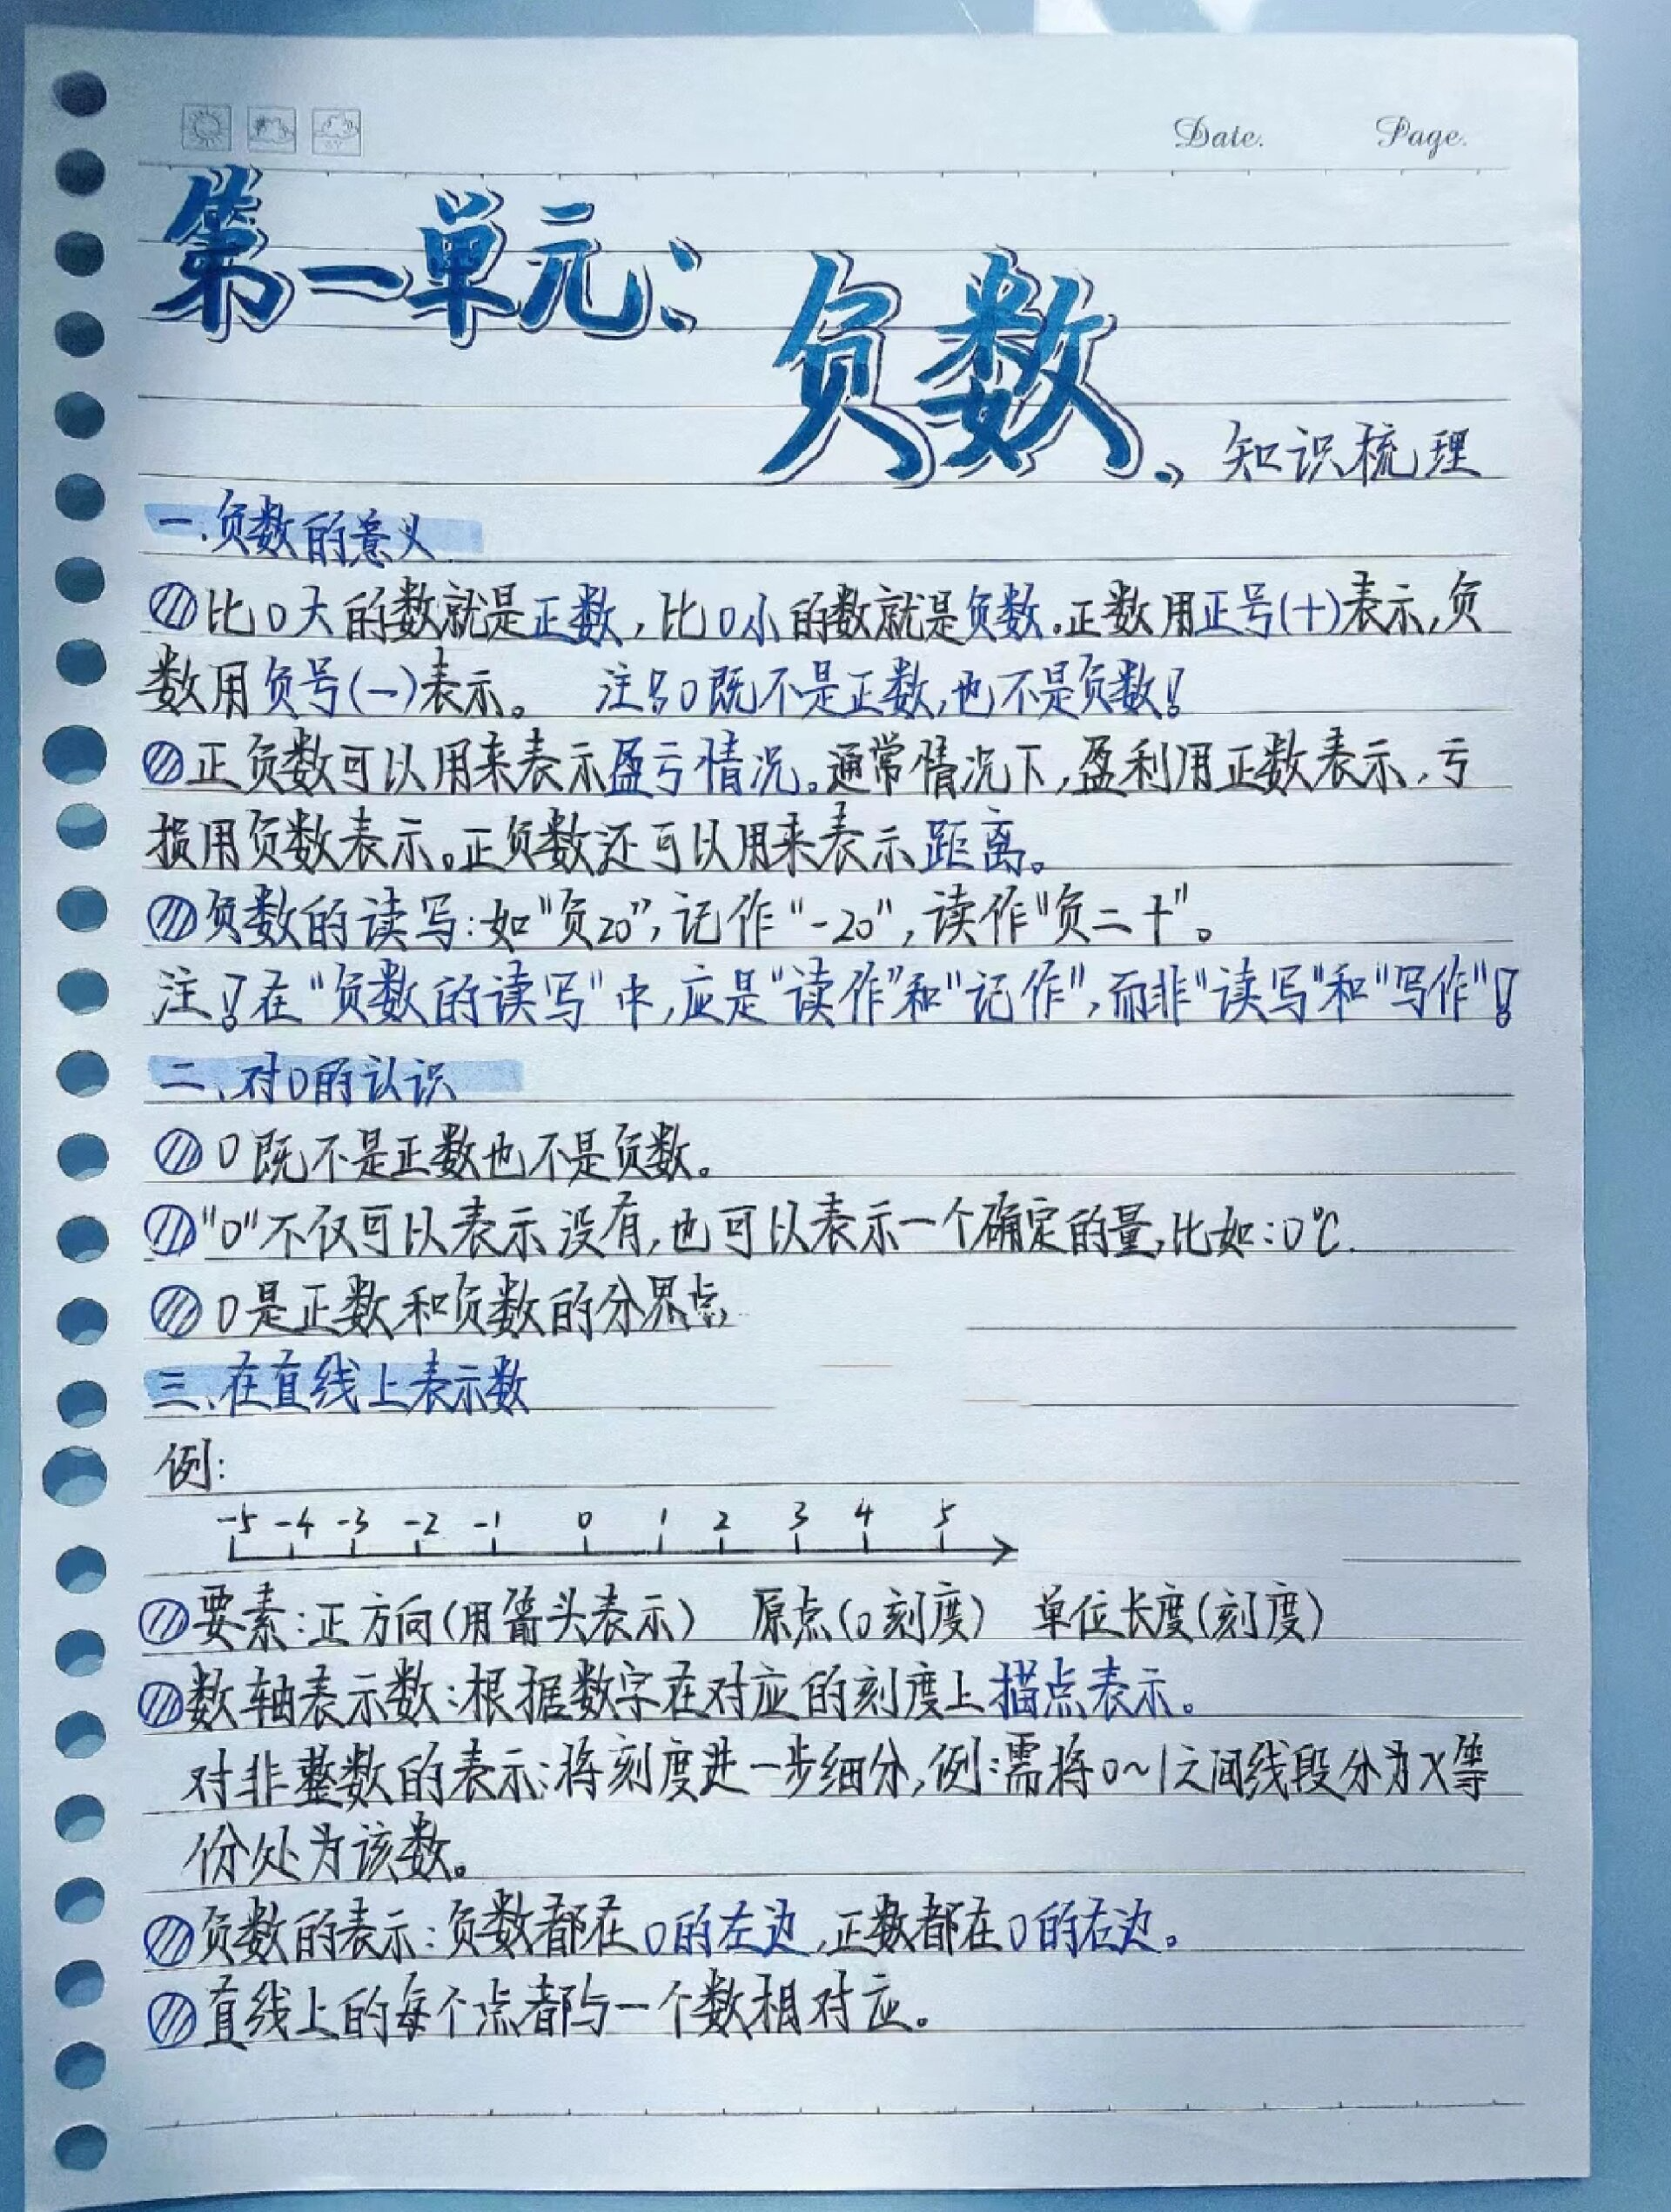 Date. Page.
第一单元：
负数
知识梳理
一.负数的意义
比0大的数就是正数，比0小的数就是负数。正数用正号(+)表示，负
数用负号(-)表示。 注！0既不是正数，也不是负数！
正负数可以用来表示盈亏情况。通常情况下，盈利用正数表示，亏
损用负数表示。正负数还可以用来表示距离。
负数的读写：如“负20”，记作“-20”，读作“负二十”。
注！在“负数的读写”中，应是“读作”和“记作”，而非“读写”和“写作”！
二、对0的认识
0既不是正数也不是负数。
“0”不仅可以表示没有，也可以表示一个确定的量，比如：0℃.
0是正数和负数的分界点
三、在直线上表示数
例：
-5 -4 -3 -2 -1 0 1 2 3 4 5
要素：正方向(用箭头表示) 原点(0刻度) 单位长度(刻度)
数轴表示数：根据数字在对应的刻度上描点表示。
对非整数的表示：将刻度进一步细分，例：需将0~1之间线段分为X等
份处为该数。
负数的表示：负数都在0的左边，正数都在0的右边。
直线上的每个点都与一个数相对应。